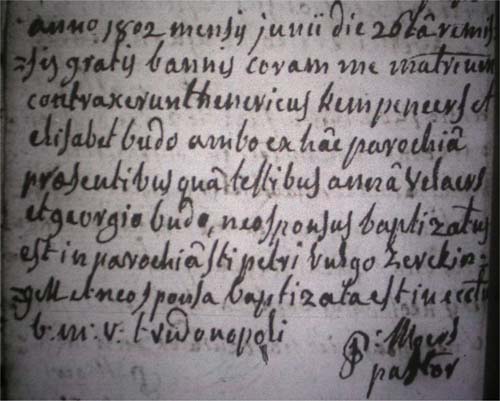 anno 1802 mensis junii die 26tâ remis-
sis gratis bannis coram me matrium
contraxerunt henericus kempeneers et
elisabet budo ambo ex hâc parochiâ
præsentibus quâ testibus annâ Velaers
et georgio budo, neosponsus baptizatus
est in parochiâ sti petri vulgo Zerckin-
gen et neosponsa baptizata est in ecctâ
b: m: v: trudonopoli
pastor